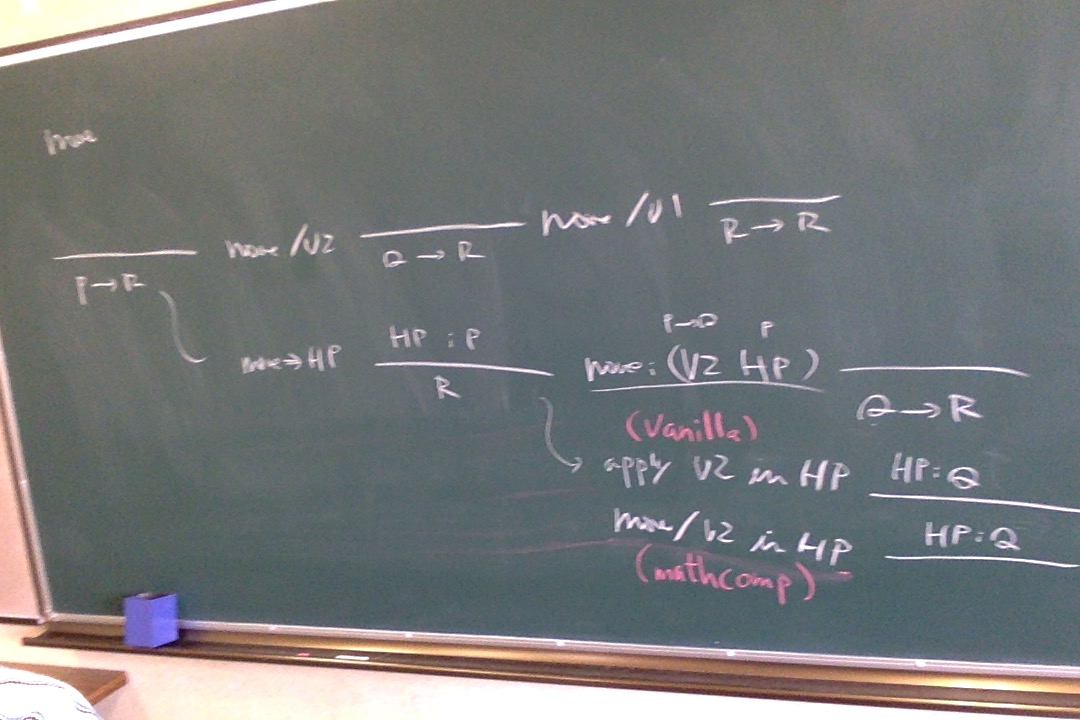 move
P→R move/V2 Q→R move/V1 R→R
P→Q P
move⇒HP HP : P move: (V2 HP)
R Q→R
(Vanilla)
apply V2 in HP HP:Q
move/V2 in HP HP:Q
(mathcomp)